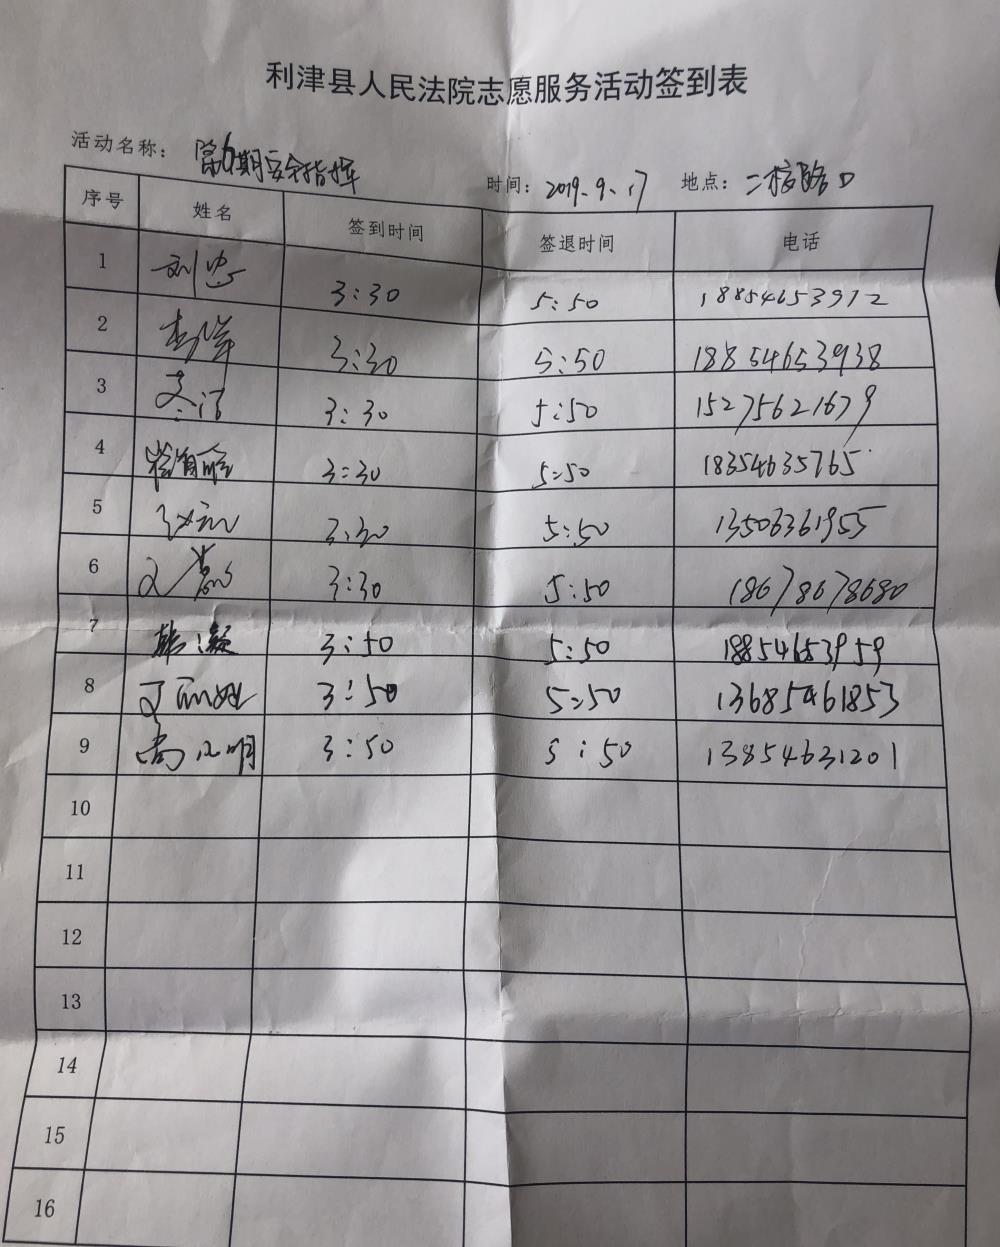 利津县人民法院志愿服务活动签到表
活动名称： 安全指挥 时间： 2019.9.17 地点： 二校路口
序号 姓名 签到时间 签退时间 电话
1 刘忠 3:30 5:50 18854653912
2 3:30 5:50 18854653938
3 3:30 5:50 15275621679
4 3:30 5:50 18354635765
5 3:30 5:50 13506361955
6 3:30 5:50 18678678680
7 韩凝 3:50 5:50 18854653959
8 3:50 5:50 13685461853
9 3:50 5:50 13854631201
10
11
12
13
14
15
16